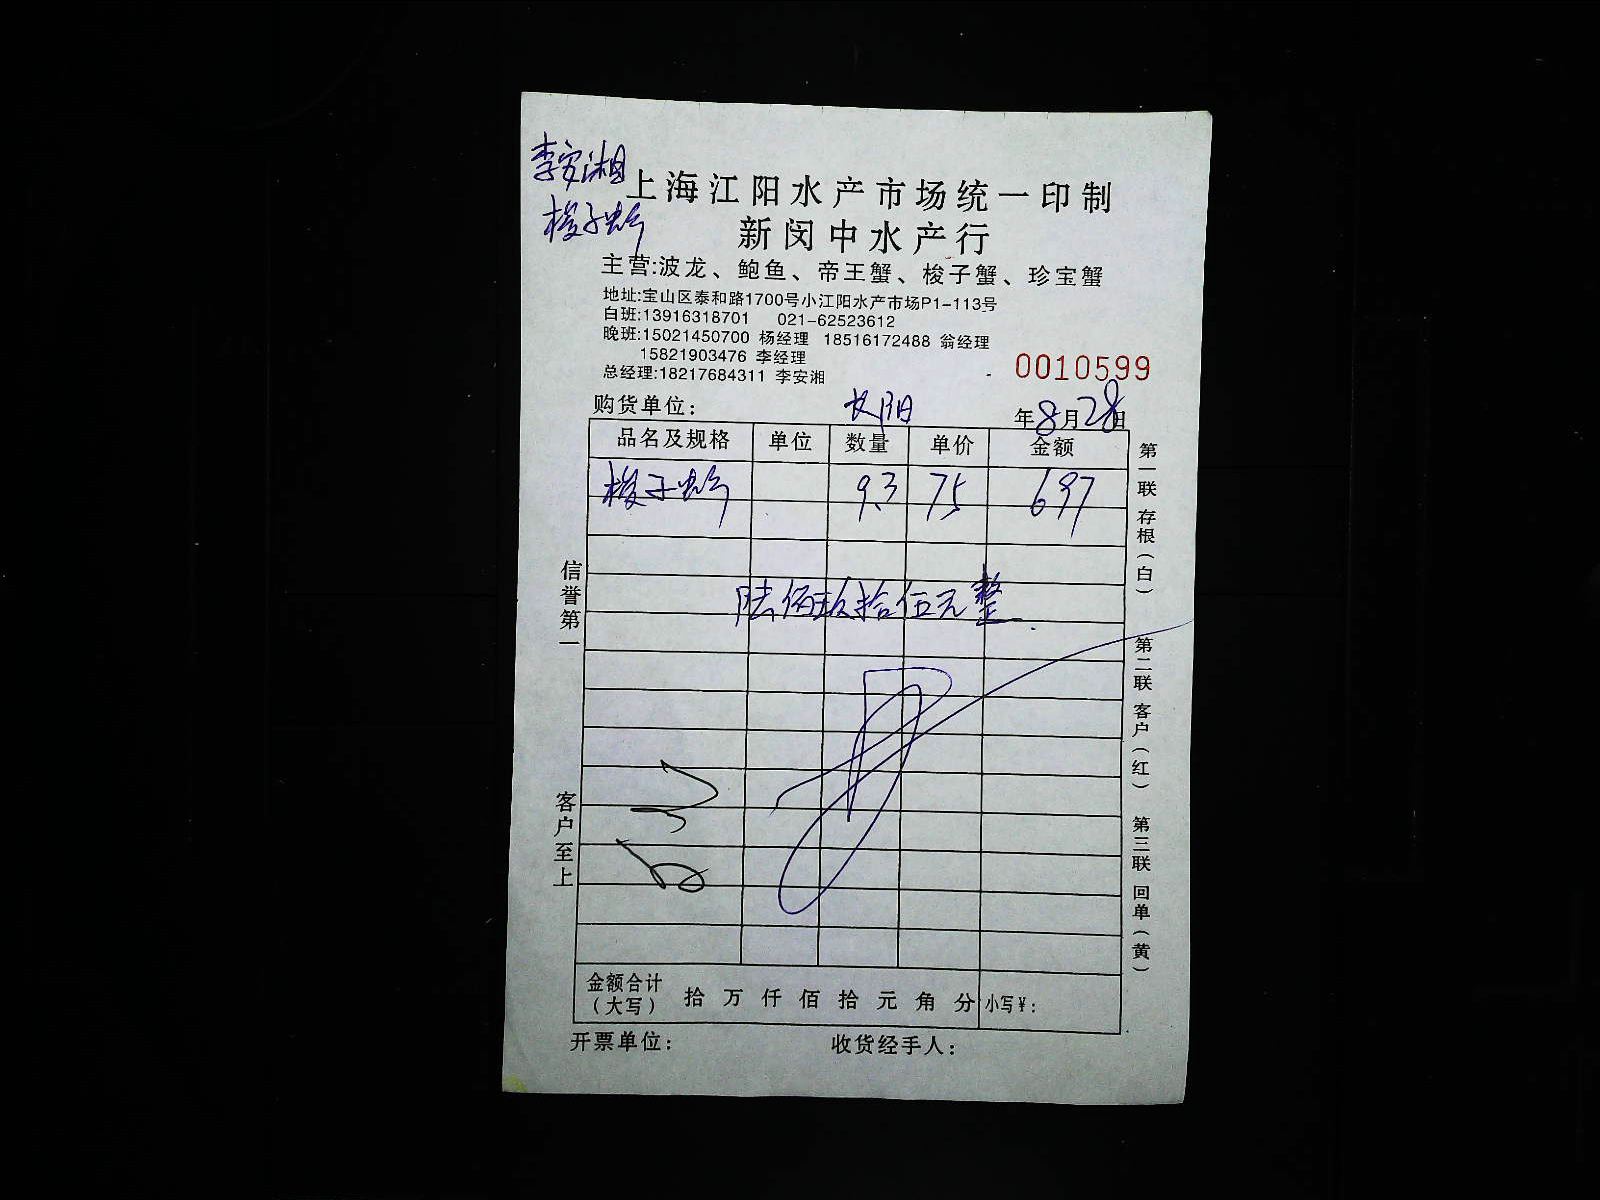 李安湘
梭子蟹
上海江阳水产市场统一印制
新闵中水产行
主营:波龙、鲍鱼、帝王蟹、梭子蟹、珍宝蟹
地址:宝山区泰和路1700号小江阳水产市场P1-113号
白班:13916318701 021-62523612
晚班:15021450700 杨经理 18516172488 翁经理
15821903476 李经理
总经理:18217684311 李安湘
0010599
购货单位: 长阳 年8月28日
品名及规格 单位 数量 单价 金额
梭子蟹 9.3 75 697
陆佰玖拾伍元整
信誉第一
客户至上
第一联 存根(白)
第二联 客户(红)
第三联 回单(黄)
金额合计(大写) 拾 万 仟 佰 拾 元 角 分 小写¥:
开票单位: 收货经手人: